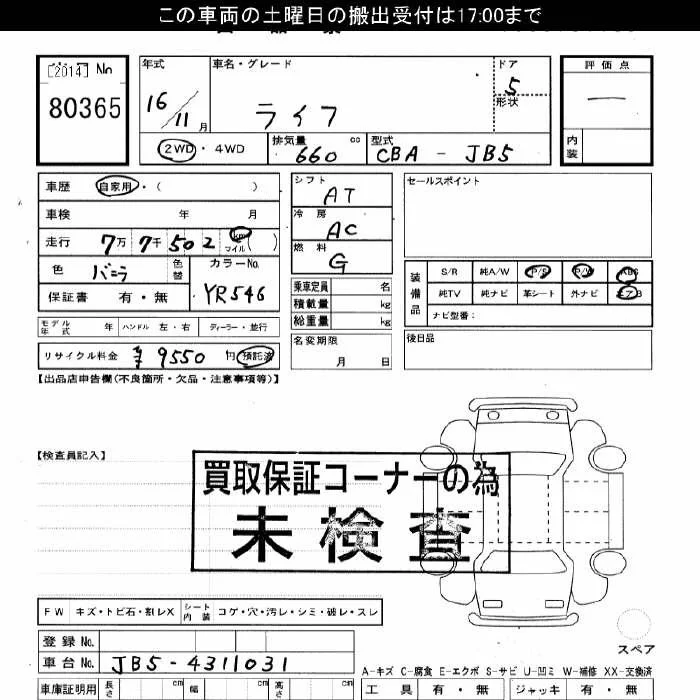 この車両の土曜日の搬出受付は17:00まで
[2014] No
80365
年式
16/11月
車名・グレード
ライフ
ドア
5
形状
評価点
―
内装
2WD・4WD
排気量
660 cc
型式
CBA - JB5
車歴 自家用・( )
車検 年 月
走行 7万 7千 502 km マイル ( )
色 バニラ 色替
カラーNo.
YR546
保証書 有・無
モデル年式 年 ハンドル 左・右 ディーラー・並行
リサイクル料金 ¥9550 円 預託済
シフト
AT
冷房
AC
燃料
G
乗車定員 名
積載量 kg
総重量 kg
名変期限
月 日
セールスポイント
装備品
S/R 純A/W P/S P/W ABS
純TV 純ナビ 革シート 外ナビ エアB
ナビ型番:
後日品
【出品店申告欄(不良箇所・欠品・注意事項等)】
【検査員記入】
買取保証コーナーの為
未検査
FW キズ・トビ石・割レX シート内装 コゲ・穴・汚レ・シミ・破レ・スレ
登録 No.
車台 No. JB5-4311031
車庫証明用 長さ cm 幅 cm 高さ cm
スペア
A-キズ C-腐食 E-エクボ S-サビ U-凹ミ W-補修 XX-交換済
工具 有・無 ジャッキ 有・無